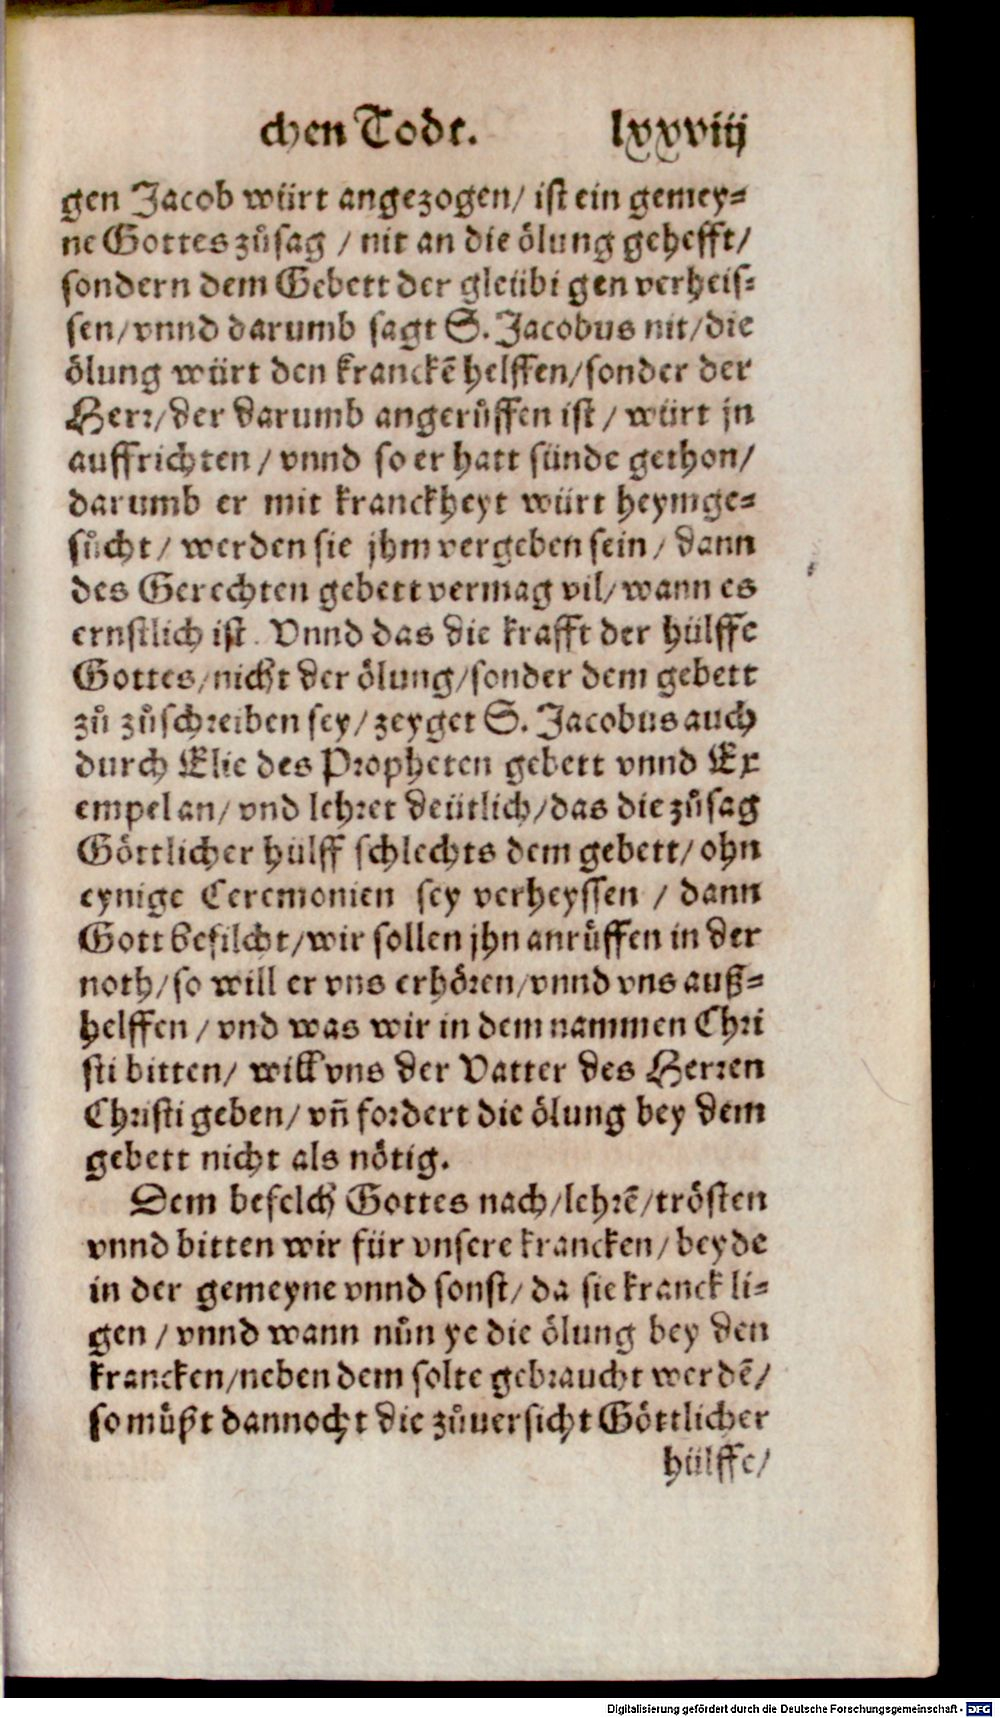 chen Todt. lxxviij
gen Jacob würt angezogen/ ist ein gemey-
ne Gottes zůsag / nit an die ölung gehefft/
sondern dem Gebett der gleübi gen verheis-
sen/ vnnd darumb sagt S. Jacobus nit/die
ölung würt den kranckē helffen/sonder der
Herr/der darumb angerůffen ist / würt jn
auffrichten / vnnd so er hatt sünde gethon/
darumb er mit kranckheyt würt heymge-
sůcht / werden sie jhm vergeben sein / dann
des Gerechten gebett vermag vil/ wann es
ernstlich ist. Vnnd das die krafft der hülffe
Gottes/nicht der ölung/sonder dem gebett
zů zůschreiben sey/ zeyget S. Jacobus auch
durch Elie des Propheten gebett vnnd Ex
empel an/ vnd lehret deütlich/das die zůsag
Göttlicher hülff schlechts dem gebett/ ohn
eynige Ceremonien sey verheyssen / dann
Gott befilcht/wir sollen jhn anrůffen in der
noth/so will er vns erhören/vnnd vns auß-
helffen / vnd was wir in dem nammen Chri
sti bitten/ will vns der Vatter des Herren
Christi geben/ vñ fordert die ölung bey dem
gebett nicht als nötig.
Dem befelch Gottes nach/lehrē/trösten
vnnd bitten wir für vnsere krancken/ beyde
in der gemeyne vnnd sonst/ da sie kranck li-
gen / vnnd wann nůn ye die ölung bey den
krancken/neben dem solte gebraucht werdē/
so můßt dannocht die zůuersicht Göttlicher
hülffe/
Digitalisierung gefördert durch die Deutsche Forschungsgemeinschaft - DFG